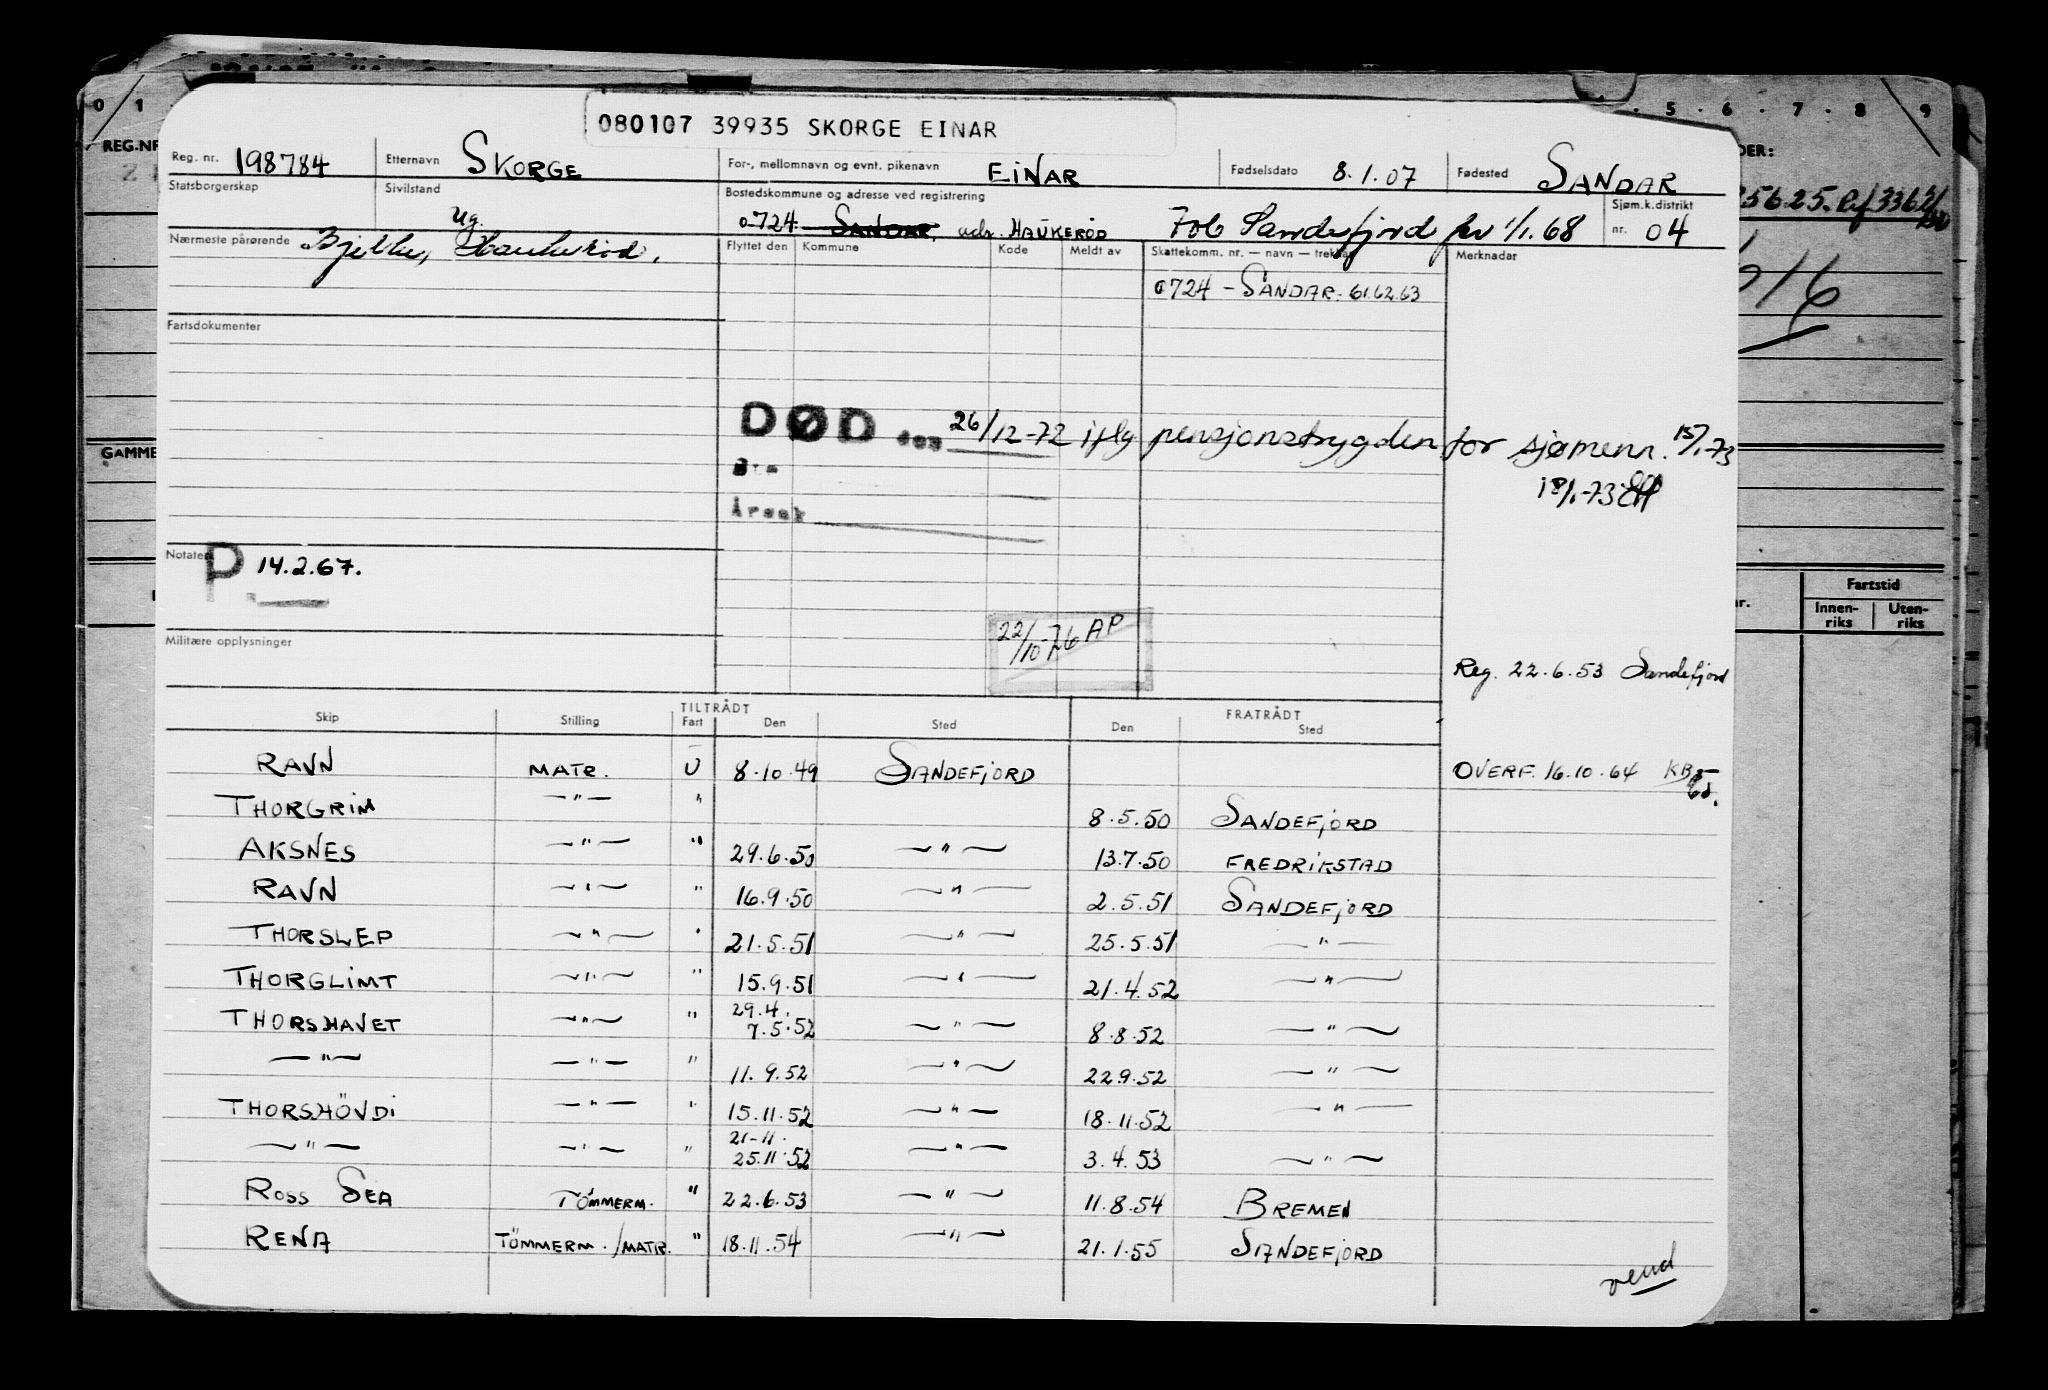 0 1 5 · 6 · 7 · 8 9
REG.NR
DER:
080107 39935 SKORGE EINAR
Reg. nr. 198784 Etternavn SKORGE For-, mellomnavn og evnt. pikenavn EINAR Fødselsdato 8.1.07 Fødested SANDAR
Statsborgerskap Sivilstand Ug. Bostedskommune og adresse ved registrering Sjøm.k.distrikt
0724 SANDAR, adr. HAUKERØD 706 Sandefjord fra 1/1.68 nr. 04
Nærmeste pårørende Haukerød.
Flyttet den Kommune Kode Meldt av Skattekomm. nr. — navn — trekkår Merknadar
0724 - SANDAR. 61.62.63
Fartsdokumenter
DØD den 26/12-72 iflg pensjonstrygden for sjømenn. 15/1.73
18/1-73
GAMME
Årsak
Notater P 14.2.67.
22/10-76 AP
Fartstid
Innen-riks Uten-riks
Militære opplysninger
Reg. 22.6.53 Sandefjord
TILTRÅDT FRATRÅDT
Skip Stilling Fart Den Sted Den Sted
RAVN MATR. U 8.10.49 SANDEFJORD OVERF. 16.10.64 KB
THORGRIM —"— " 8.5.50 SANDEFJORD
AKSNES —"— " 29.6.50 —"— 13.7.50 FREDRIKSTAD
RAVN —"— " 16.9.50 —"— 2.5.51 SANDEFJORD
THORSLEP —"— " 21.5.51 —"— 25.5.51 —"—
THORGLIMT —"— " 15.9.51 —"— 21.4.52 —"—
THORSHAVET —"— " 29.4. 7.5.52 —"— 8.8.52 —"—
—"— —"— " 11.9.52 —"— 22.9.52 —"—
THORSHÖVDI —"— " 15.11.52 —"— 18.11.52 —"—
—"— —"— " 21-11. 25.11.52 —"— 3.4.53 —"—
ROSS SEA TÖMMERM. " 22.6.53 —"— 11.8.54 BREMEN
RENA TÖMMERM./MATR. " 18.11.54 —"— 21.1.55 SANDEFJORD
vend